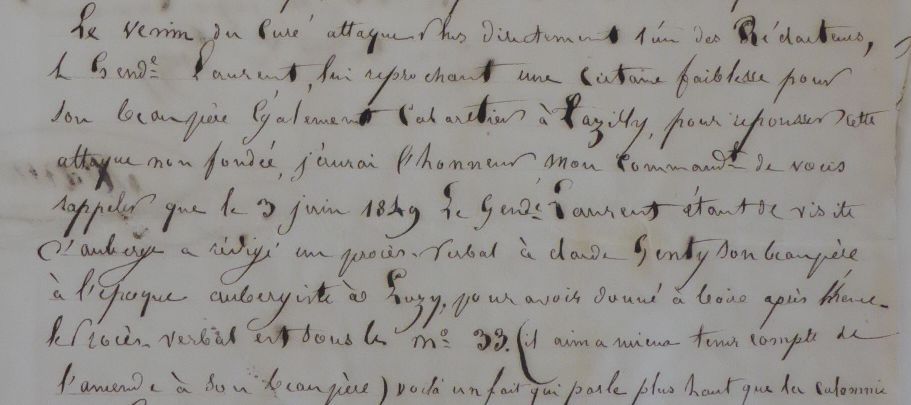 Le venin du Curé attaque plus directement l'un des Rédacteurs,
le Gend.e Laurent, lui reprochant une certaine faiblesse pour
son beaupère Également Cabaretier à Lazilly, pour repousser cette
attaque non fondée, j'aurai l'honneur mon Command.t de vous
rappeler que le 3 juin 1849 Le Gend.e Laurent étant de visite
d'auberge a rédigé un procès-verbal à claude Genty son beaupère
à l'époque aubergiste à Luzy, pour avoir donné à boire après l'heure
le Procès-verbal est sous le N.o 33. (il aima mieux tenir compte de
l'amende à son beaupère) voilà un fait qui parle plus haut que la calomnie